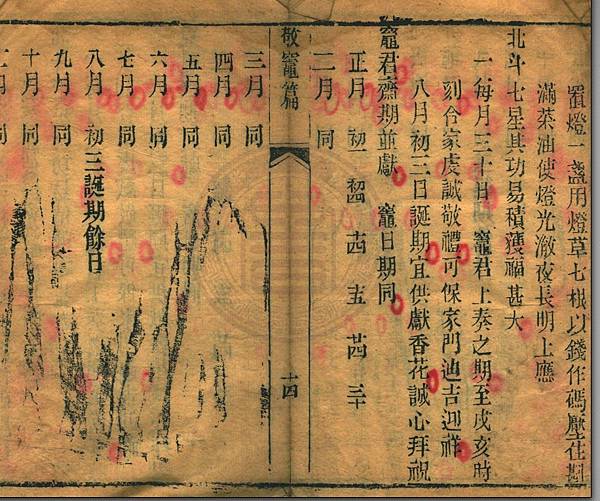 置燈一盞用燈草七根以錢作碼壓住斟
滿菜油使燈光澈夜長明上應
北斗七星其功易積獲福甚大
一每月三十日竈君上奏之期至戌亥時
刻合家虔誠敬禮可保家門迪吉迎祥
八月初三日誕期宜供獻香花誠心拜祝
竈君齋期並獻 竈日期同
正月 初一 初四 十四 十五 廿四 三十
二月 同
敬竈篇
十四
三月 同
四月 同
五月 同
六月 同
七月 同
八月 初三誕期餘日
九月 同
十月 同
月 同